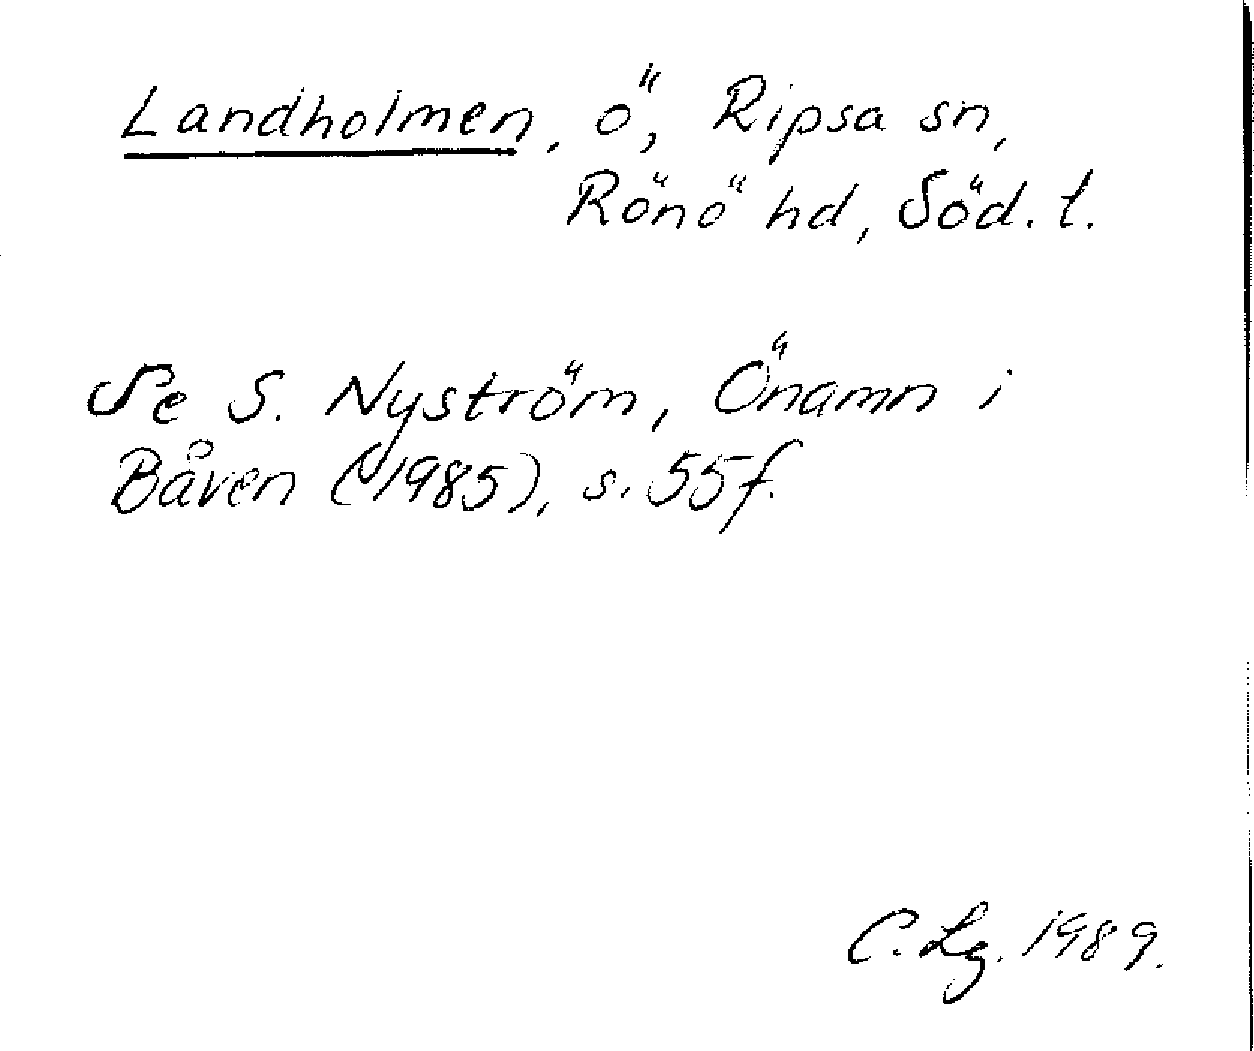 Landholmen, ö, Ripsa sn,
Rönö hd, Söd. t.
Se S. Nyström, Önamn i
Båven (1985), s. 55f.
C. Lg. 1989.